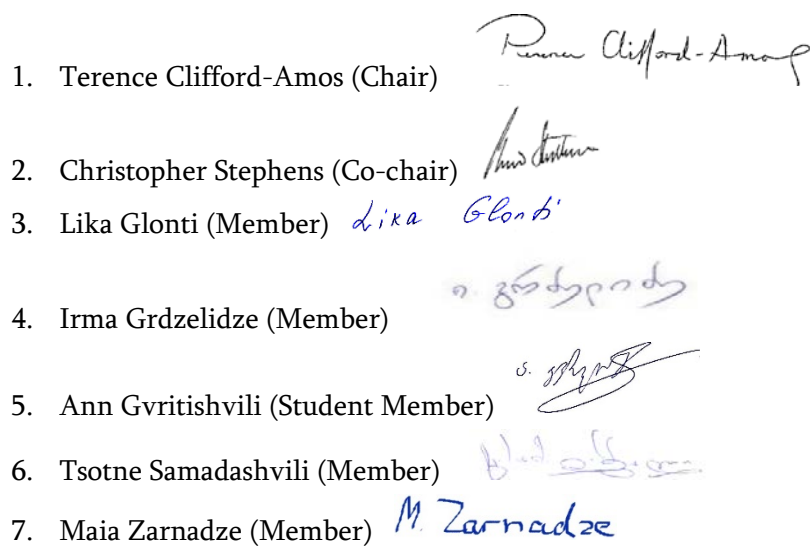 1. Terence Clifford-Amos (Chair) Clifford-Amos
2. Christopher Stephens (Co-chair)
3. Lika Glonti (Member) Lika Glonti
4. Irma Grdzelidze (Member) ი. გრძელიძე
5. Ann Gvritishvili (Student Member)
6. Tsotne Samadashvili (Member)
7. Maia Zarnadze (Member) M. Zarnadze